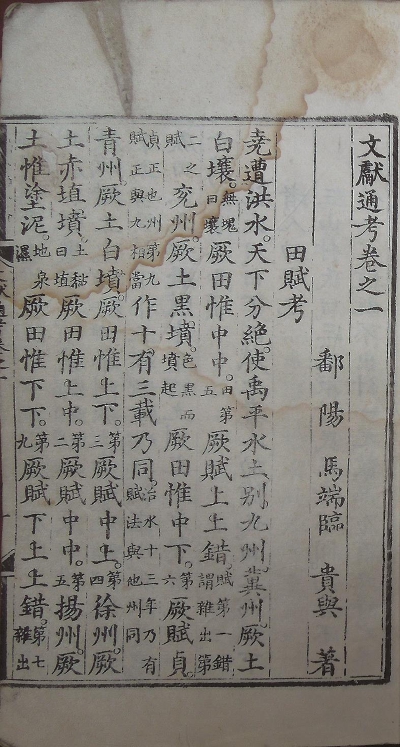 文獻通考卷之一
鄱陽馬端臨貴與著
田賦考
堯遭洪水。天下分絶。使禹平水土。別九州。冀州。厥土
白壤。無塊曰壤厥田惟中中。田第五厥賦上上錯。賦第一錯謂雜出第
二之賦兖州。厥土黑墳。色黑而墳起厥田惟中下。第六厥賦貞。
貞正也州第九賦正與九相當作十有三載乃同。治水十三年乃有賦法與他州同
青州。厥土白墳。厥田惟上下。第三厥賦中上。第四徐州。厥
土赤埴墳。土黏曰埴厥田惟上中。第二厥賦中中。第五揚州。厥
土惟塗泥。地泉濕厥田惟下下。第九厥賦下上上錯。第七雜出